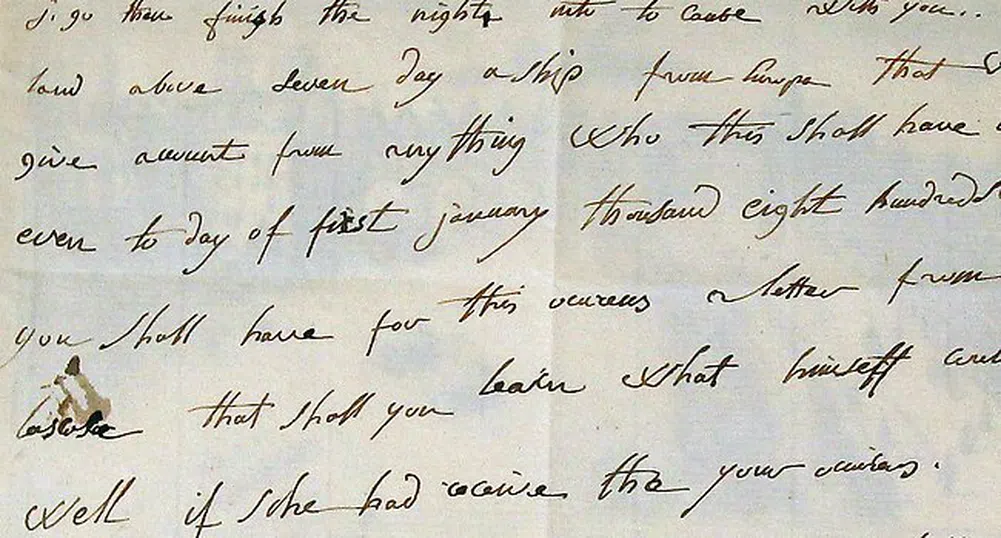 J. go then finish the night, into to cause with you..
land above seven day a ship from Europa that
give acount from any thing who this shall have
even to day of first january thousand eight hundred
you shall have for this ocurens a letter from
that shall you learn what himself
well if sche had receive the your ocuirens.